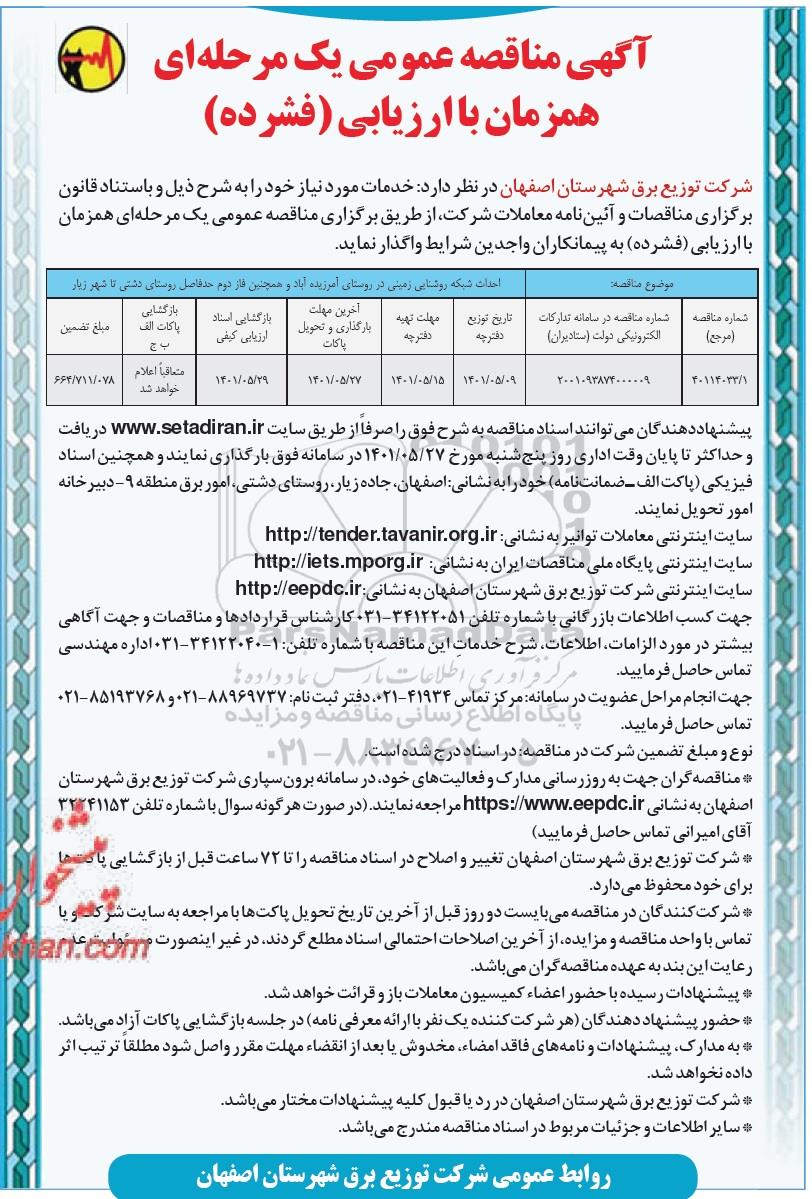 آگهی مناقصه عمومی یک مرحله‌ای
همزمان با ارزیابی (فشرده)
شرکت توزیع برق شهرستان اصفهان در نظر دارد: خدمات مورد نیاز خود را به شرح ذیل و باستناد قانون
برگزاری مناقصات و آئین‌نامه معاملات شرکت، از طریق برگزاری مناقصه عمومی یک مرحله‌ای همزمان
با ارزیابی (فشرده) به پیمانکاران واجدین شرایط واگذار نماید.
موضوع مناقصه: احداث شبکه روشنایی زمینی در روستای آمرزیده آباد و همچنین فاز دوم حدفاصل روستای دشتی تا شهر زیار
شماره مناقصه (مرجع) شماره مناقصه در سامانه تدارکات الکترونیکی دولت (ستادیران) تاریخ توزیع دفترچه مهلت تهیه دفترچه آخرین مهلت بارگذاری و تحویل پاکات بازگشایی اسناد ارزیابی کیفی بازگشایی پاکات الف ب ج مبلغ تضمین
۴۰۱۱۴۰۳۳/۱ ۲۰۰۱۰۹۳۸۷۴۰۰۰۰۰۹ ۱۴۰۱/۰۵/۰۹ ۱۴۰۱/۰۵/۱۵ ۱۴۰۱/۰۵/۲۷ ۱۴۰۱/۰۵/۲۹ متعاقباً اعلام خواهد شد ۶۶۴/۷۱۱/۰۷۸
پیشنهاددهندگان می‌توانند اسناد مناقصه به شرح فوق را صرفاً از طریق سایت www.setadiran.ir دریافت
و حداکثر تا پایان وقت اداری روز پنج‌شنبه مورخ ۱۴۰۱/۰۵/۲۷ در سامانه فوق بارگذاری نمایند و همچنین اسناد
فیزیکی (پاکت الف ـ ضمانت‌نامه) خود را به نشانی: اصفهان، جاده زیار، روستای دشتی، امور برق منطقه ۹- دبیرخانه
امور تحویل نمایند.
سایت اینترنتی معاملات توانیر به نشانی: http://tender.tavanir.org.ir
سایت اینترنتی پایگاه ملی مناقصات ایران به نشانی: http://iets.mporg.ir
سایت اینترنتی شرکت توزیع برق شهرستان اصفهان به نشانی: http://eepdc.ir
جهت کسب اطلاعات بازرگانی با شماره تلفن ۳۴۱۲۲۰۵۱-۰۳۱ کارشناس قراردادها و مناقصات و جهت آگاهی
بیشتر در مورد الزامات، اطلاعات، شرح خدمات این مناقصه با شماره تلفن: ۱-۳۴۱۲۲۰۴۰-۰۳۱ اداره مهندسی
تماس حاصل فرمایید.
جهت انجام مراحل عضویت در سامانه: مرکز تماس ۴۱۹۳۴-۰۲۱، دفتر ثبت نام: ۸۸۹۶۹۷۳۷-۰۲۱ و ۸۵۱۹۳۷۶۸-۰۲۱
تماس حاصل فرمایید.
نوع و مبلغ تضمین شرکت در مناقصه: در اسناد درج شده است.
* مناقصه‌گران جهت به روزرسانی مدارک و فعالیت‌های خود، در سامانه برون‌سپاری شرکت توزیع برق شهرستان
اصفهان به نشانی https://www.eepdc.ir مراجعه نمایند. (در صورت هرگونه سوال با شماره تلفن ۳۲۲۴۱۱۵۳
آقای امیرانی تماس حاصل فرمایید)
* شرکت توزیع برق شهرستان اصفهان تغییر و اصلاح در اسناد مناقصه را تا ۷۲ ساعت قبل از بازگشایی پاکت‌ها
برای خود محفوظ می‌دارد.
* شرکت‌کنندگان در مناقصه می‌بایست دو روز قبل از آخرین تاریخ تحویل پاکت‌ها با مراجعه به سایت شرکت و یا
تماس با واحد مناقصه و مزایده، از آخرین اصلاحات احتمالی اسناد مطلع گردند، در غیر اینصورت مسئولیت عدم
رعایت این بند به عهده مناقصه‌گران می‌باشد.
* پیشنهادات رسیده با حضور اعضاء کمیسیون معاملات باز و قرائت خواهد شد.
* حضور پیشنهاد دهندگان (هر شرکت‌کننده یک نفر با ارائه معرفی نامه) در جلسه بازگشایی پاکات آزاد می‌باشد.
* به مدارک، پیشنهادات و نامه‌های فاقد امضاء، مخدوش یا بعد از انقضاء مهلت مقرر واصل شود مطلقاً ترتیب اثر
داده نخواهد شد.
* شرکت توزیع برق شهرستان اصفهان در رد یا قبول کلیه پیشنهادات مختار می‌باشد.
* سایر اطلاعات و جزئیات مربوط در اسناد مناقصه مندرج می‌باشد.
روابط عمومی شرکت توزیع برق شهرستان اصفهان
ParsNamadData
مرکز فرآوری اطلاعات پارس نماد داده ها
پایگاه اطلاع رسانی مناقصه و مزایده
۰۲۱-۸۸۳۴۹۶۷۰-۵
پیشخوان
khan.com